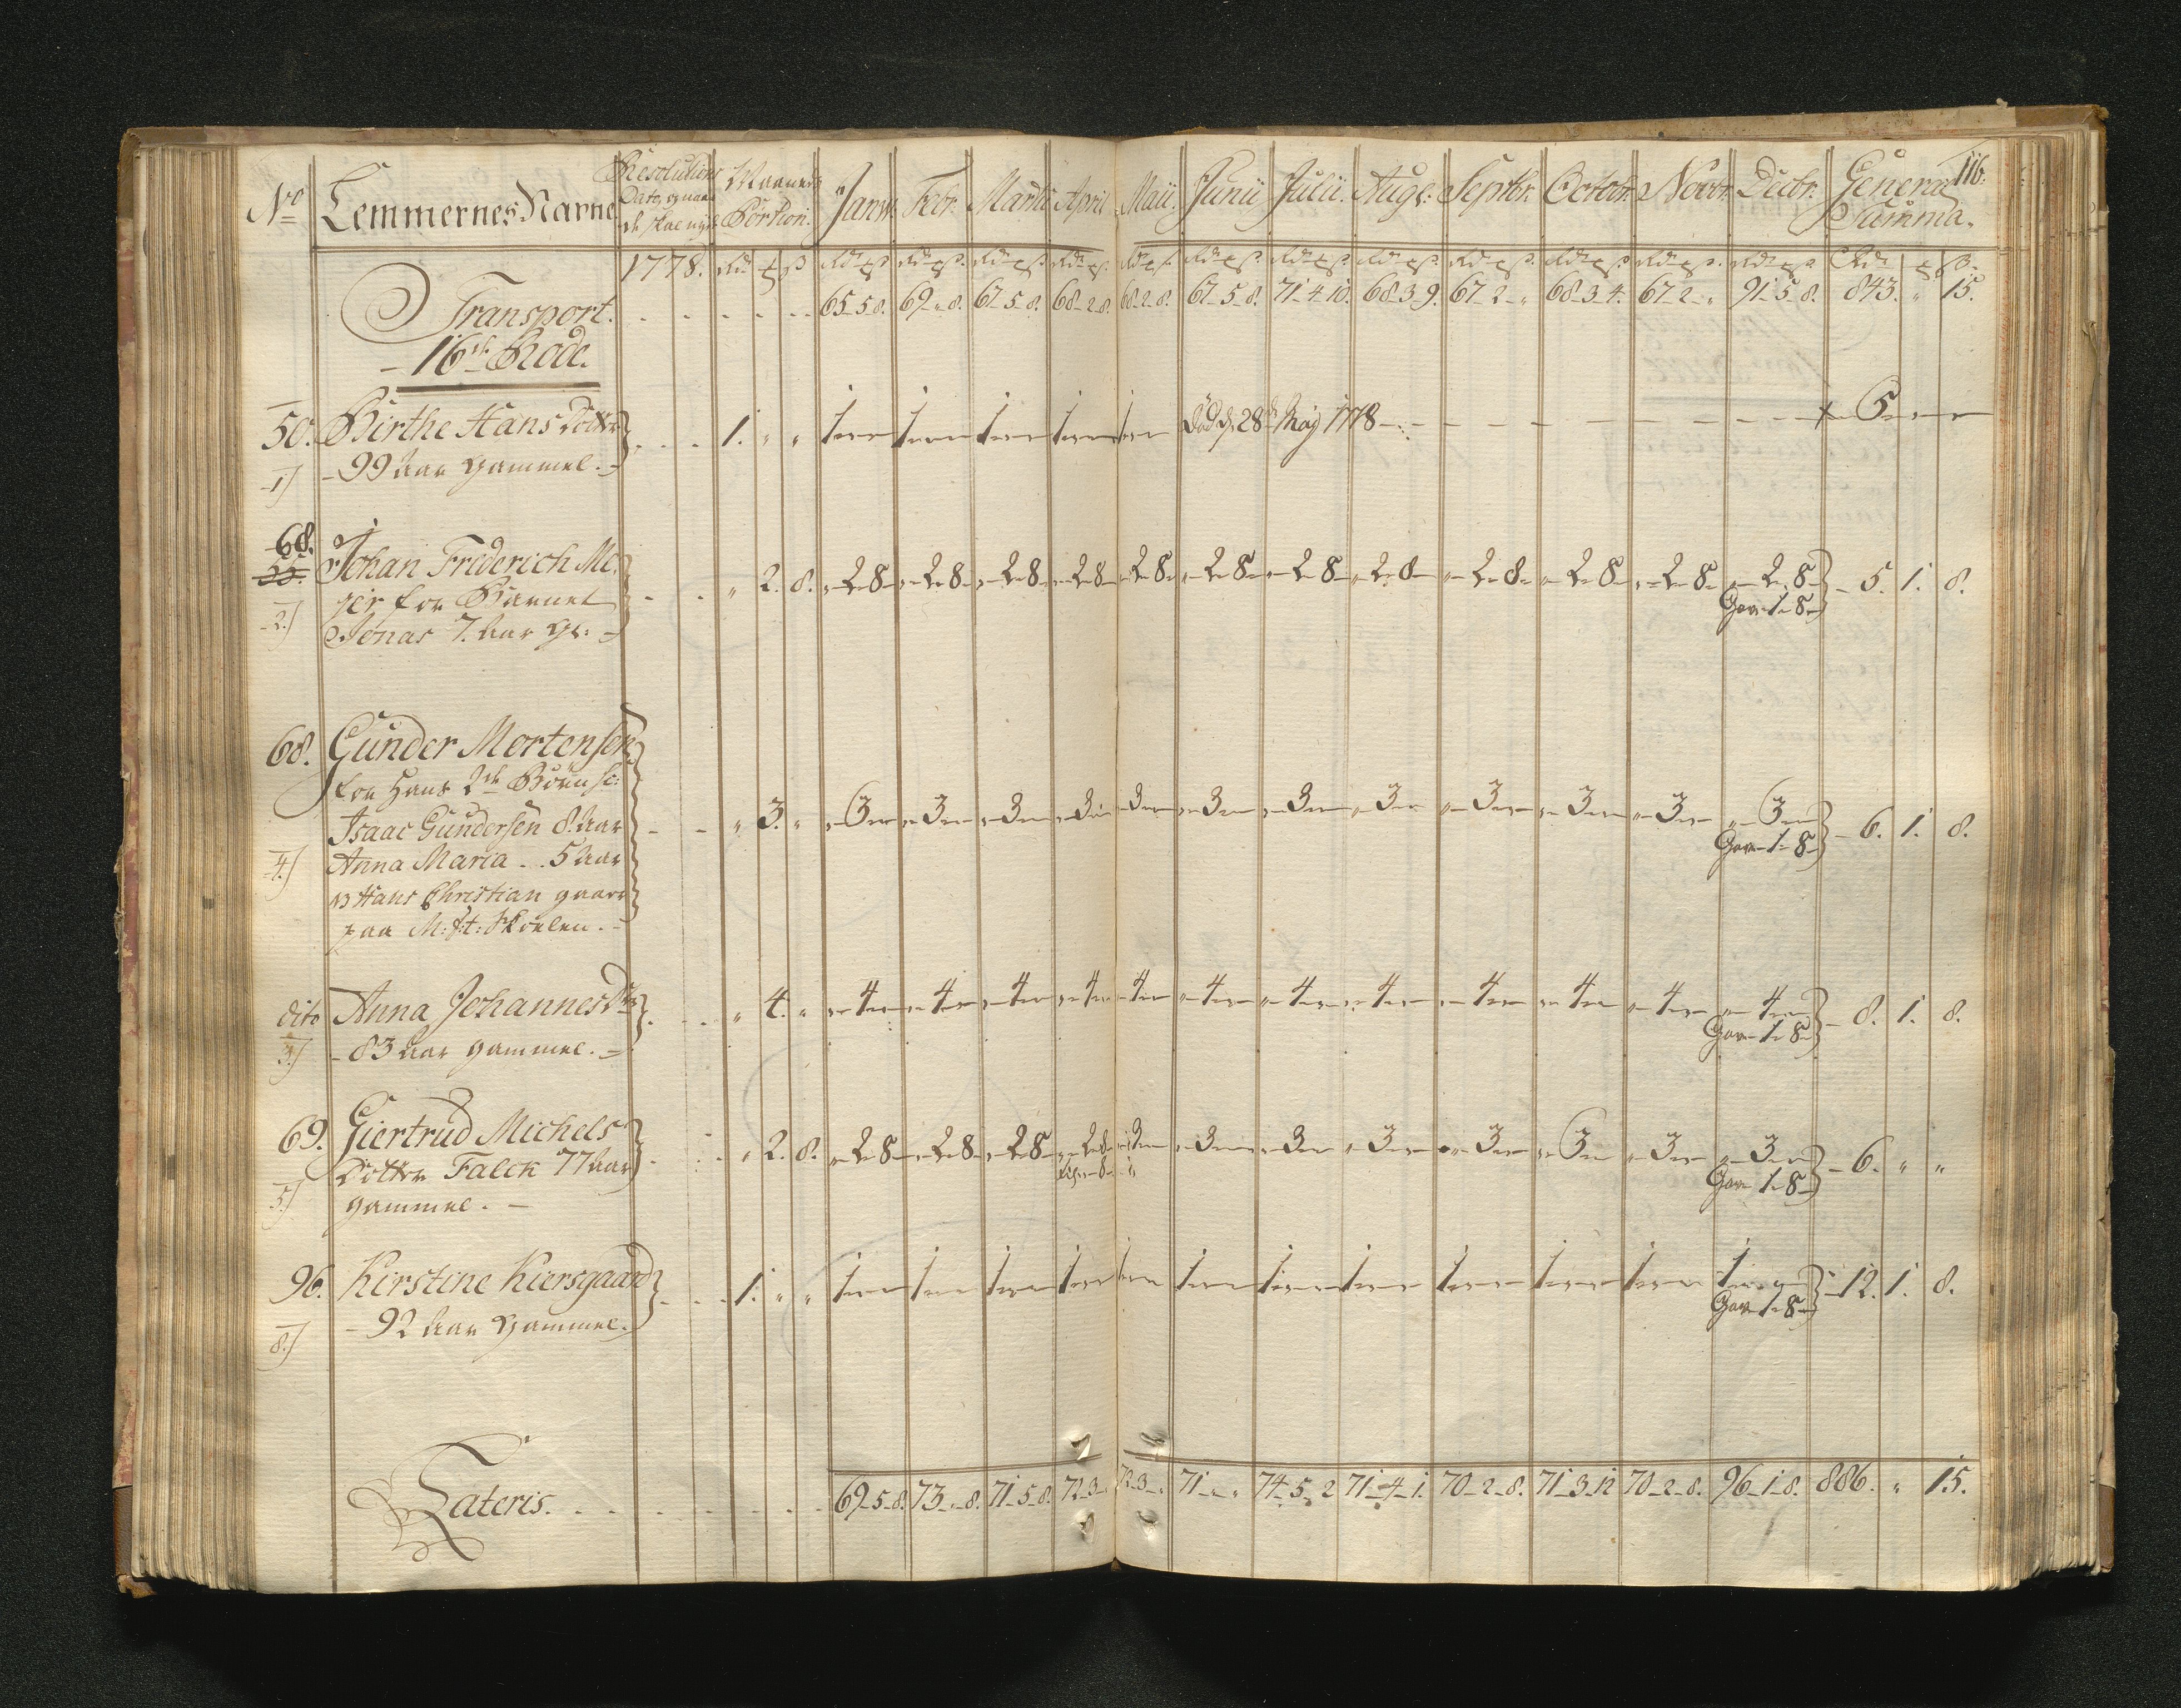 No Lemmernes Navne Resolutions Maaneds Januar. Febr. Martii April Maii. Junii Julii. Augs: Septbr. Octobr. Novbr. Decbr. General 116.
Dato, og naar Portion. Summa.
1778. Rdr ß Rdr ß Rdr ß Rdr ß Rdr ß Rdr ß Rdr ß Rdr ß Rdr ß Rdr ß Rdr ß Rdr ß Rdr ß Rdr ß
Transport. 65-5-8. 69-"-8. 67-5-8. 68-2-8. 68-2-8. 67-5-8. 71-4-10. 68-3-9. 67-2-" 68-3-4. 67-2-" 91-5-8. 843. " 15.
-16de Rode.
50. Birthe Hans Dotter 1. " " 1-"-" 1-"-" 1-"-" 1-"-" 1-"-" død d: 28de Maij 1778 - - - - - - 5-"-"
1) -99 aar Gammel.-
68.
55. Johan Friderich Me- " 2. 8. "-2-8 "-2-8 "-2-8 "-2-8 "-2-8 "-2-8 "-2-8 "-2-8 "-2-8 "-2-8 "-2-8 "-2-8 - 5. 1. 8.
2) jer for Barnet Gav-1-8
Jonas 7. Aar Gl:-
68. Gunder Mortensen
for Hans 2de Børn
Isaac Gundersen 8. Aar " 3. " "-3-" "-3-" "-3-" "-3-" "-3-" "-3-" "-3-" "-3-" "-3-" "-3-" "-3-" "-3-" - 6. 1. 8.
4) Anna Maria - . 5 Aar Gav-1-8
Hans Christian gaaer
paa M: St: Skolen.-
dito Anna Johannes Dtr " 4. " "-4-" "-4-" "-4-" "-4-" "-4-" "-4-" "-4-" "-4-" "-4-" "-4-" "-4-" "-4-" - 8. 1. 8.
3) -83 aar gammel.- Gav-1-8
69. Giertrud Michels " 2. 8. "-2-8 "-2-8 "-2-8 "-2-8 "-3-" "-3-" "-3-" "-3-" "-3-" "-3-" "-3-" "-3-" - 6. " "
Dotter Falck 77 Aar Gav-1-8
5) gammel.-
96. Kirstine Kiersgaard 1. " " 1-"-" 1-"-" 1-"-" 1-"-" 1-"-" 1-"-" 1-"-" 1-"-" 1-"-" 1-"-" 1-"-" 1-"-" -12. 1. 8.
8) -92 Aar Gammel.- Gav-1-8
Lateris. 69-5-8. 73-"-8. 71-5-8. 72-3-" 72-3-" 71-"-" 74-5-2 71-4-1. 70-2-8. 71-3-12 70-2-8. 96-1-8. 886. " 15.